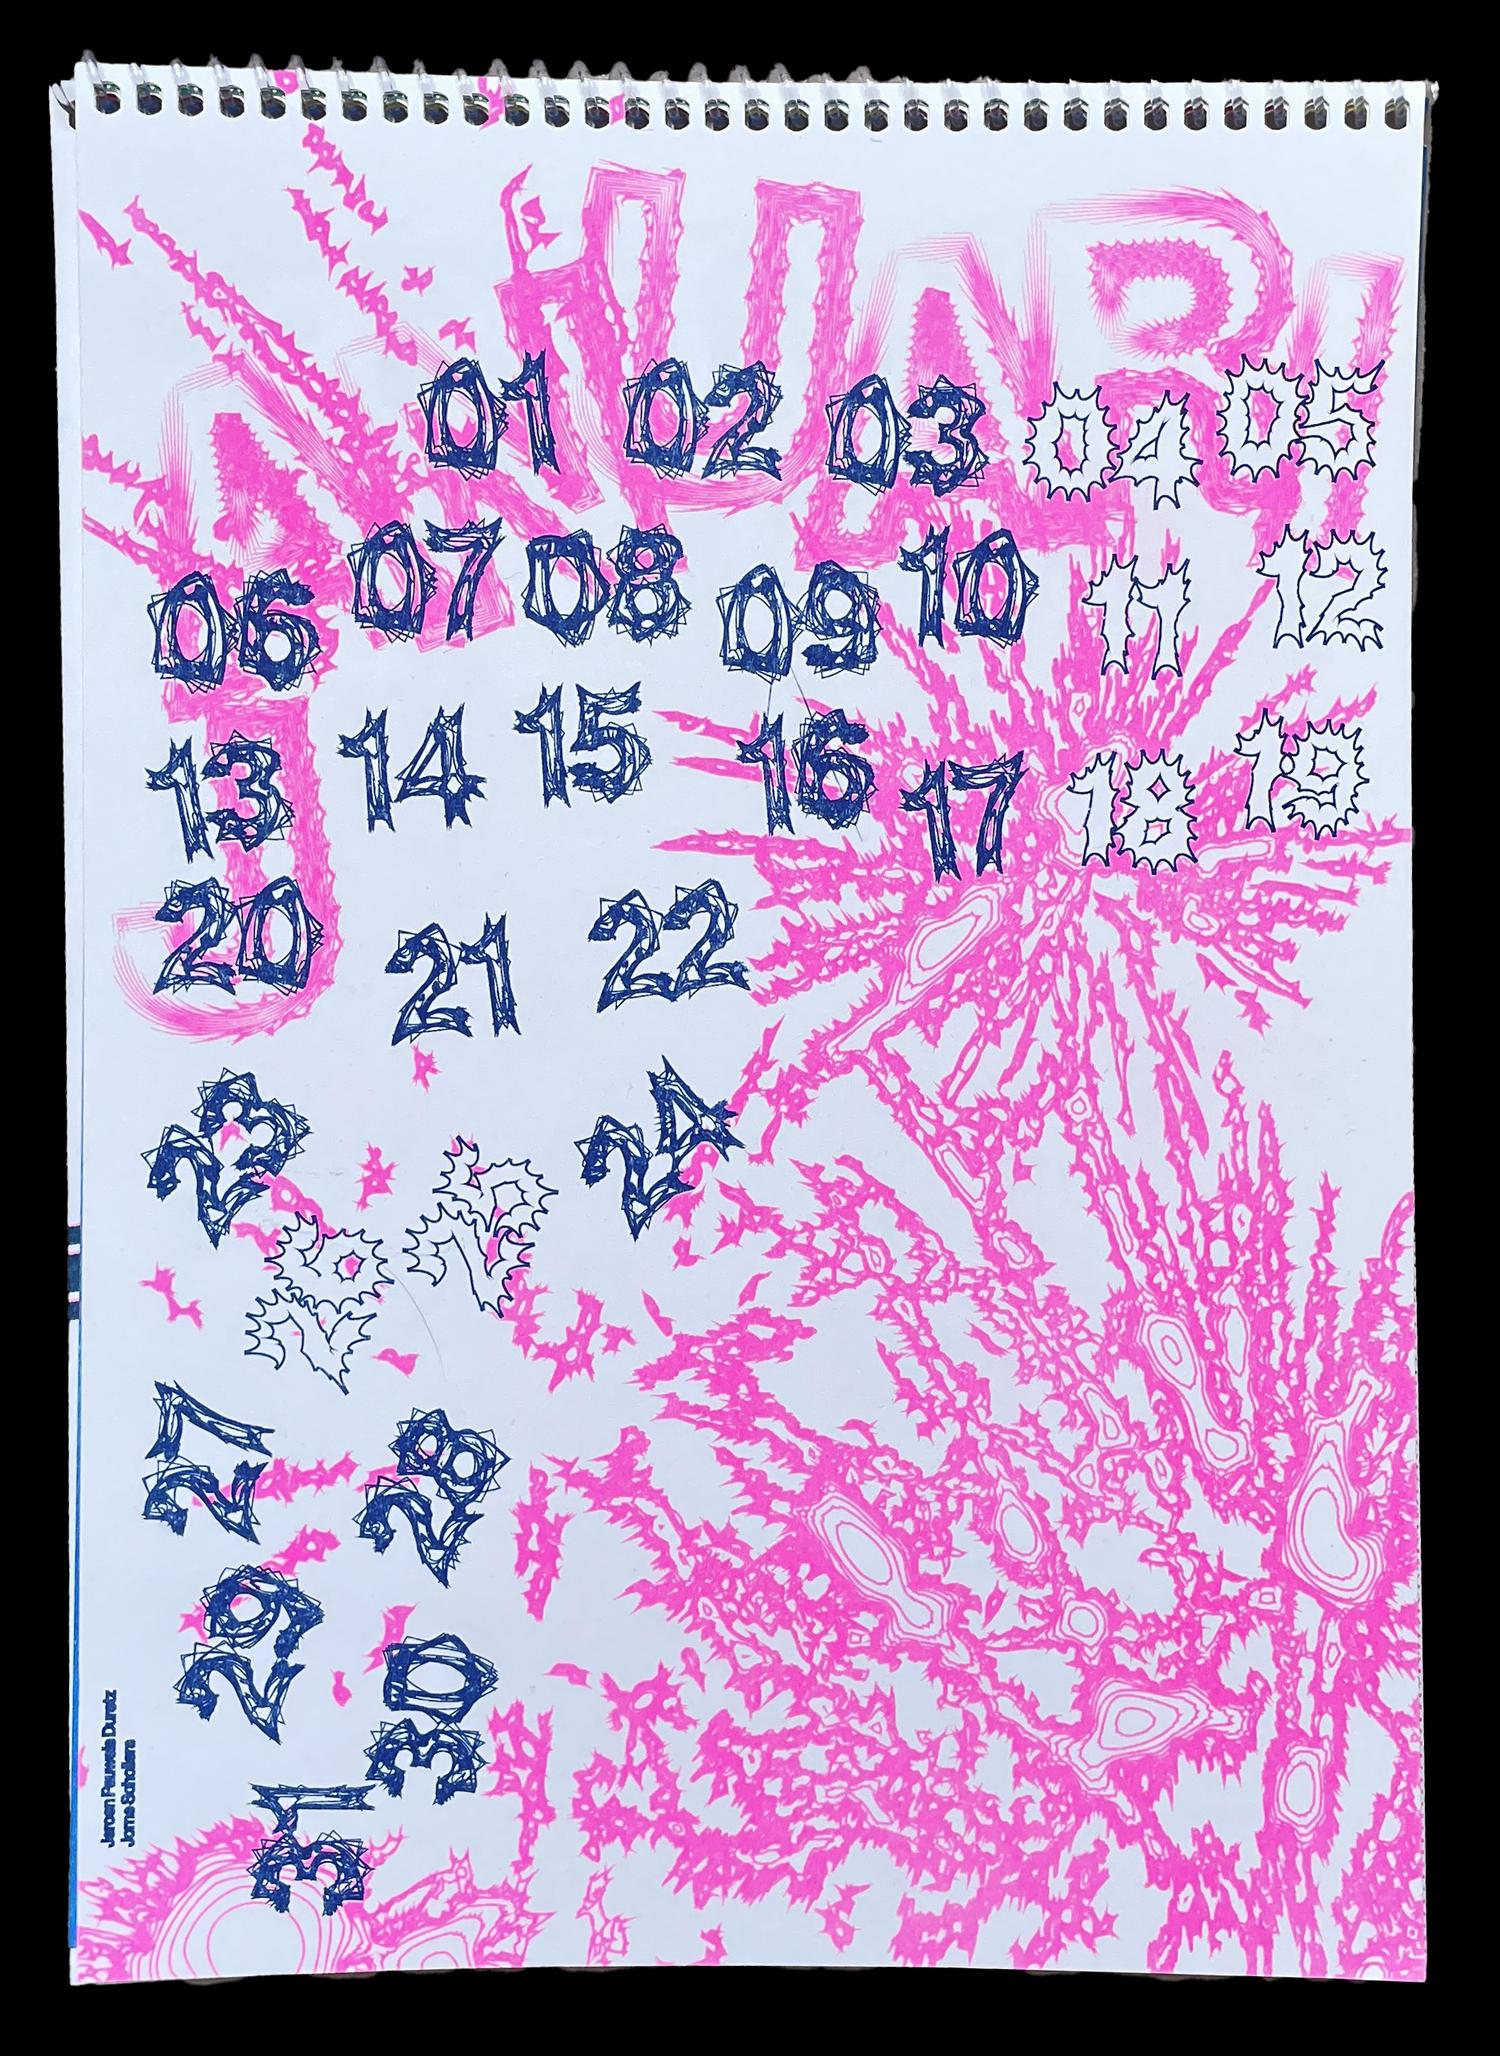 JANUARI
01 02 03 04 05
06 07 08 09 10 11 12
13 14 15 16 17 18 19
20 21 22
23 24
26 25
27 28
29 30
31
Jeroen Pauwels Duretz
Jorne Scholiers